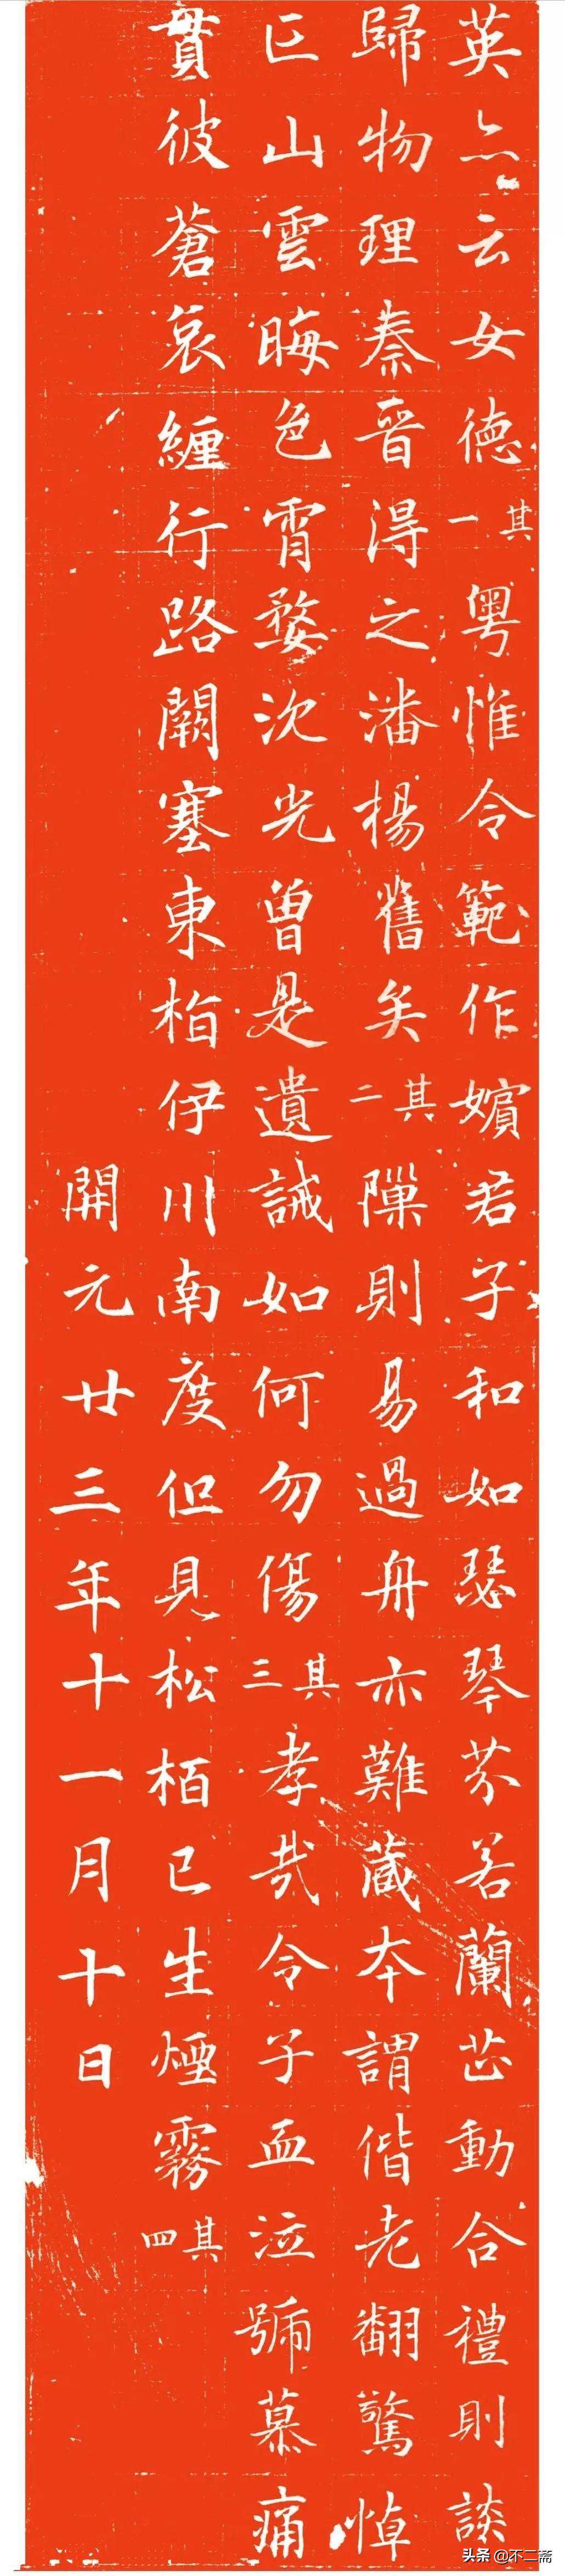 英亦云女德其一粤惟令範作嬪君子和如瑟琴芬若蘭芷動合禮則談
歸物理秦晉得之潘楊舊矣其二隟則易過舟亦難藏本謂偕老翻驚悼
亡山雲晦色宵婺沈光曾是遺誡如何勿傷其三孝哉令子血泣號慕痛
貫彼蒼哀纏行路闕塞東栢伊川南度但見松栢已生煙霧其四
開元廿三年十一月十日
头条 @不二斋